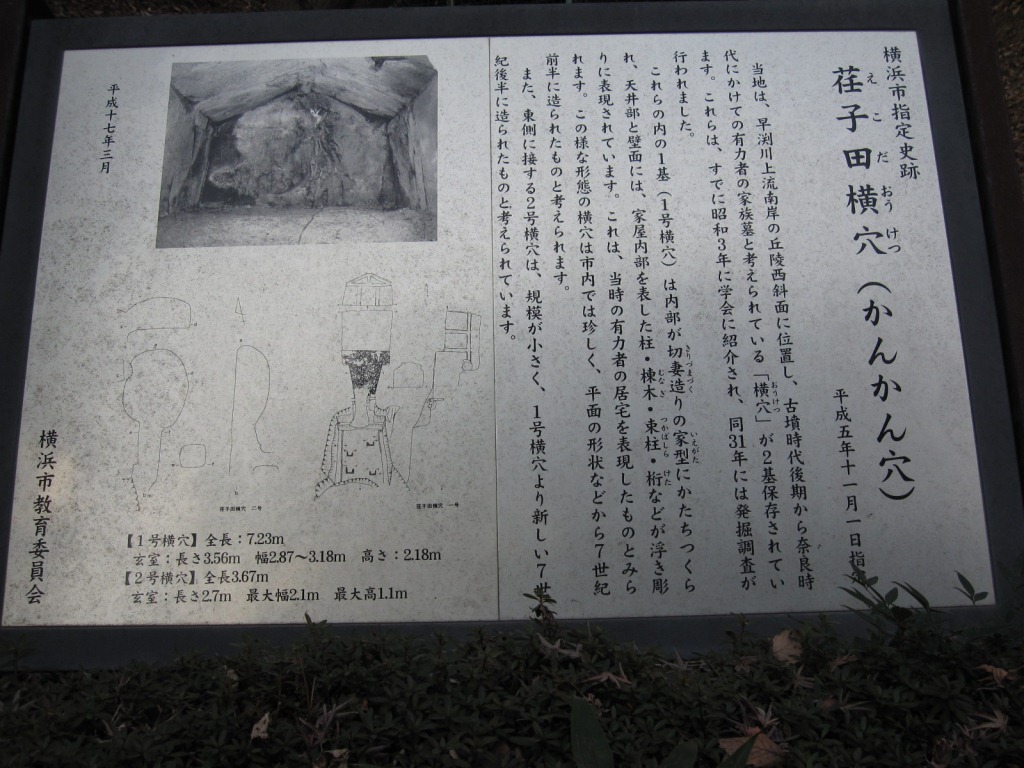 横浜市指定史跡
荏子田横穴（かんかん穴）
えこだおうけつ
平成五年十一月一日指定
当地は、早渕川上流南岸の丘陵西斜面に位置し、古墳時代後期から奈良時
代にかけての有力者の家族墓と考えられている「横穴」が２基保存されてい
おうけつ
ます。これらは、すでに昭和３年に学会に紹介され、同31年には発掘調査が
行われました。
これらの内の１基（１号横穴）は内部が切妻造りの家型にかたちつくら
きりづまづく
いえがた
れ、天井部と壁面には、家屋内部を表した柱・棟木・束柱・桁などが浮き彫
むなぎ
つかばしら
けた
りに表現されています。これは、当時の有力者の居宅を表現したものとみら
れます。この様な形態の横穴は市内では珍しく、平面の形状などから７世紀
前半に造られたものと考えられます。
また、東側に接する２号横穴は、規模が小さく、１号横穴より新しい７世
紀後半に造られたものと考えられています。
平成十七年三月
荏子田横穴　二号
荏子田横穴　一号
【１号横穴】全長：7.23m
玄室：長さ3.56m　幅2.87～3.18m　高さ：2.18m
【２号横穴】全長3.67m
玄室：長さ2.7m　最大幅2.1m　最大高1.1m
横浜市教育委員会